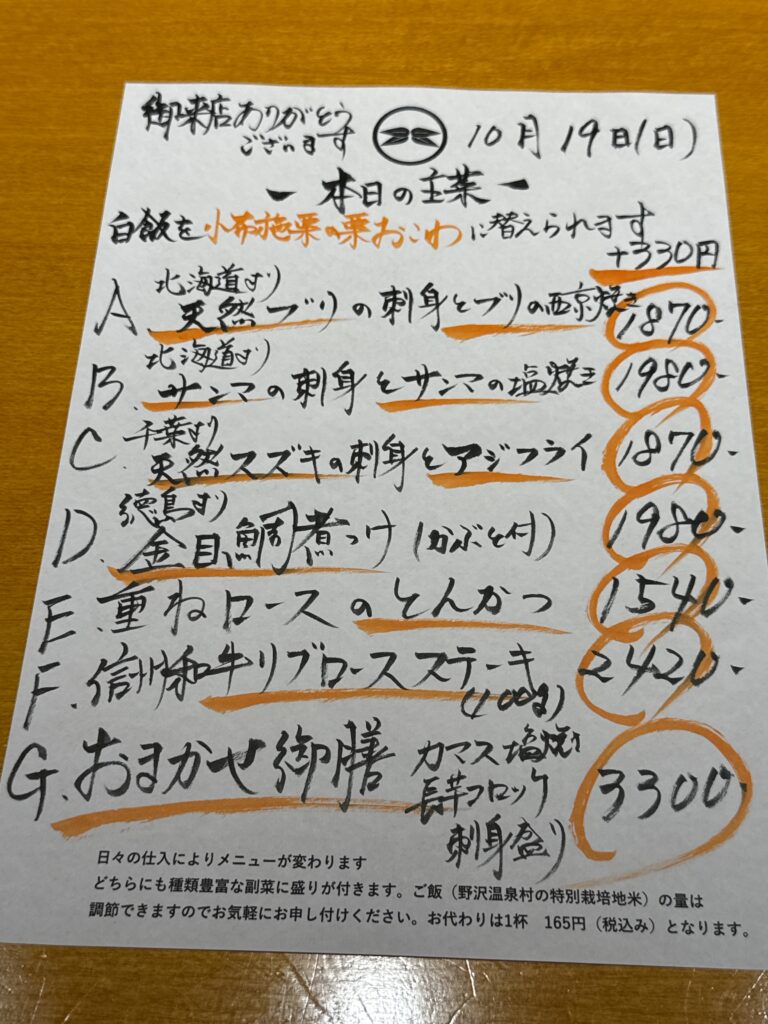 御来店ありがとう
ございます
10月19日(日)
ー本日の主菜ー
白飯を小布施栗の栗おこわに替えられます
+330円
北海道より
A. 天然ブリの刺身とブリの西京焼き 1870-
北海道より
B. サンマの刺身とサンマの塩焼き 1980-
千葉より
C. 天然スズキの刺身とアジフライ 1870-
徳島より
D. 金目鯛煮つけ(かぶと付) 1980-
E. 重ねロースのとんかつ 1540-
F. 信州和牛リブロースステーキ 2420-
(100g)
G. おまかせ御膳 カマス塩焼き 3300-
長芋コロッケ
刺身盛り
日々の仕入によりメニューが変わります
どちらにも種類豊富な副菜に盛りが付きます。ご飯（野沢温泉村の特別栽培地米）の量は
調節できますのでお気軽にお申し付けください。お代わりは1杯　165円（税込み）となります。